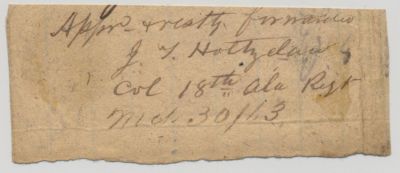 Appr & resptly forwarded
J. T. Holtzclaw
Col 18th Ala Regt
Mch 30/63